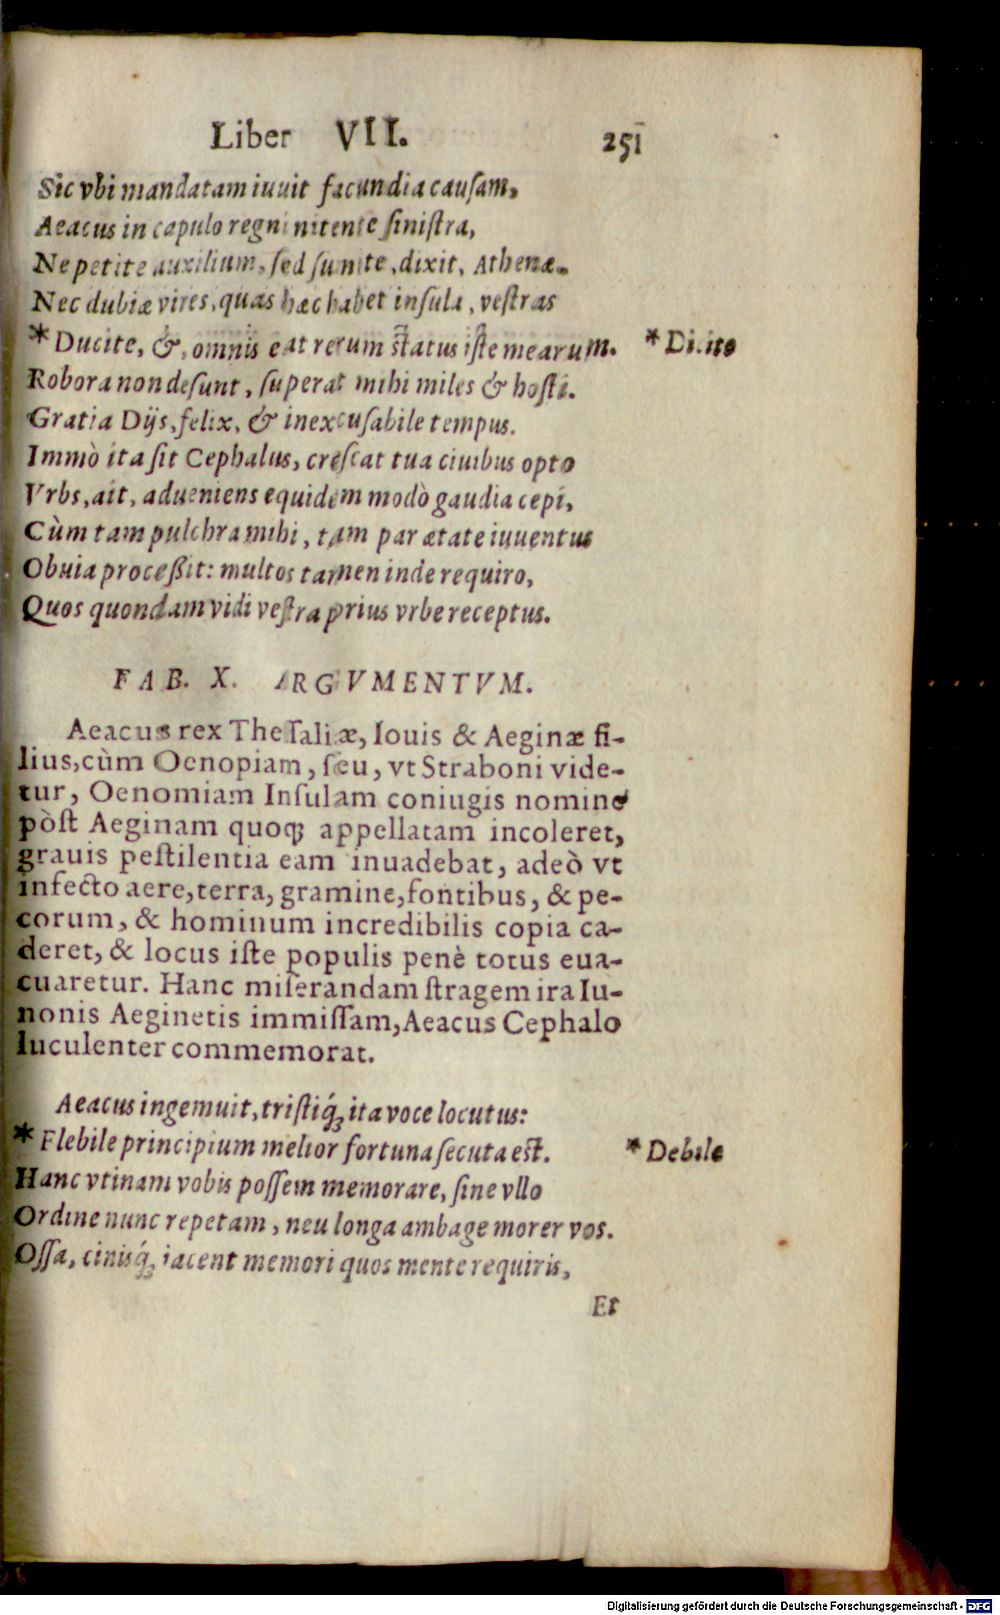 Liber VII. 251
Sic vbi mandatam iuuit facundia cauſam,
Aeacus in capulo regni nitente ſiniſtra,
Ne petite auxilium, ſed ſumite, dixit, Athenæ.
Nec dubiæ vires, quas hæc habet inſula, veſtras
* Ducite, &, omnis eat rerum ſtatus iſte mearum. * Dicite
Robora non deſunt, ſuperat mihi miles & hoſti.
Gratia Dijs, felix, & inexcuſabile tempus.
Immò ita ſit Cephalus, creſcat tua ciuibus opto
Vrbs, ait, adueniens equidem modò gaudia cepi,
Cùm tam pulchra mihi, tam par ætate iuuentus
Obuia proceßit: multos tamen inde requiro,
Quos quondam vidi veſtra prius vrbe receptus.
FAB. X. ARGVMENTVM.
Aeacus rex Theſſaliæ, Iouis & Aeginæ fi-
lius, cùm Oenopiam, ſeu, vt Straboni vide-
tur, Oenomiam Inſulam coniugis nomine
pòſt Aeginam quoq; appellatam incoleret,
grauis peſtilentia eam inuadebat, adeò vt
infecto aere, terra, gramine, fontibus, & pe-
corum, & hominum incredibilis copia ca-
deret, & locus iſte populis penè totus eua-
cuaretur. Hanc miſerandam ſtragem ira Iu-
nonis Aeginetis immiſſam, Aeacus Cephalo
luculenter commemorat.
Aeacus ingemuit, triſtiq́; ita voce locutus:
* Flebile principium melior fortuna ſecuta eſt. * Debile
Hanc vtinam vobis poſſem memorare, ſine vllo
Ordine nunc repetam, neu longa ambage morer vos.
Oſſa, cinisq́; iacent memori quos mente requiris,
Et
Digitalisierung gefördert durch die Deutsche Forschungsgemeinschaft - DFG